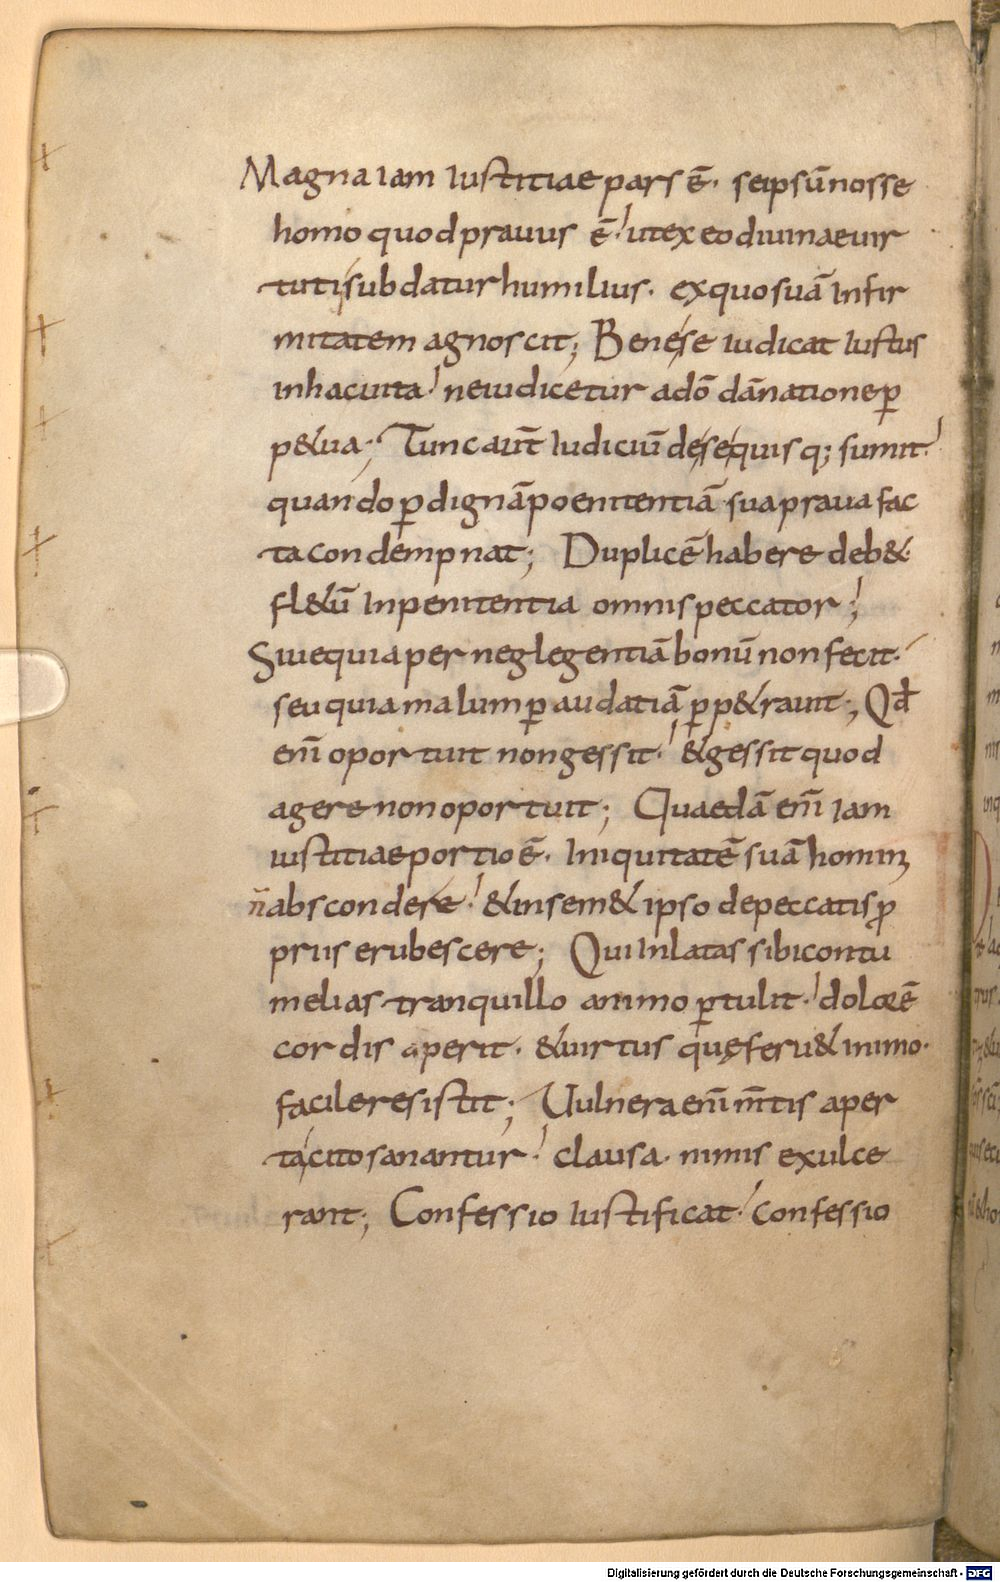 Magna iam iustitiae pars ē. seipsū nosse
homo quod prauus ē. ut ex eo diuinae uir
tuti sub datur humilius. ex quo suā infir
mitatem agnoscit; Bene se iudicat iustus
in hac uita. ne iudicetur a dō dānatione ꝑ
p&ua; Tunc aūt iudiciū de se quisq; sumit.
quando ꝑ dignā poenitentiā sua praua fac
ta condempnat; Duplicē habere deb&
fl&ū in penitentia omnis peccator;
Siue quia per neglegentiā bonū non fecit.
seu quia malum ꝑ audatiā ꝑp&rauit; Qđ
enī oportuit non gessit. & gessit quod
agere non oportuit; Quaedā enī iam
iustitiae portio ē. Iniquitatē suā homini
n̄ abscondere. & in sem&ipso de peccatis ꝓ
priis erubescere; Qui inlatas sibi contu
melias tranquillo animo ꝑtulit. dolorē
cordis aperit. & uirtus quę feru& inimo.
facile resistit; Uulnera enī m̄tis aper
ta cito sanantur. clausa. nimis exulce
rant; Confessio iustificat. Confessio
Digitalisierung gefördert durch die Deutsche Forschungsgemeinschaft - DFG